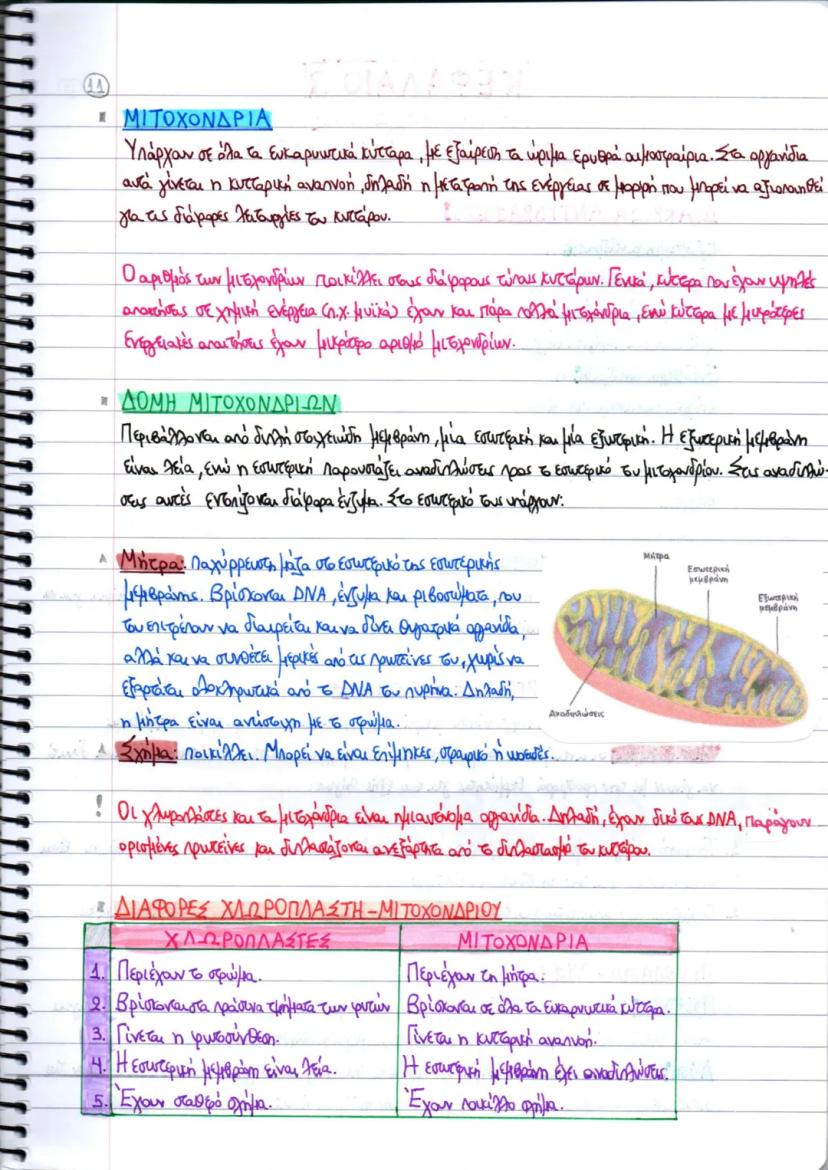 11
ΜΙΤΟΧΟΝΔΡΙΑ
Υπάρχουν σε όλα τα ευκαρυωτικά κύτταρα, με εξαίρεση τα ώριμα ερυθρά αιμοσφαίρια. Στα οργανίδια
αυτά γίνεται η κυτταρική αναπνοή, δηλαδή η μετατροπή της ενέργειας σε μορφή που μπορεί να αξιοποιηθεί
για τις διάφορες λειτουργίες του κυττάρου.
Ο αριθμός των μιτοχονδρίων ποικίλλει στους διάφορους τύπους κυττάρων. Γενικά, κύτταρα που έχουν υψηλές
απαιτήσεις σε χημική ενέργεια (π.χ. μυϊκά) έχουν και πάρα πολλά μιτοχόνδρια, ενώ κύτταρα με μικρότερες
ενεργειακές απαιτήσεις έχουν μικρότερο αριθμό μιτοχονδρίων.
ΔΟΜΗ ΜΙΤΟΧΟΝΔΡΙΩΝ
Περιβάλλονται από διπλή στοιχειώδη μεμβράνη, μία εσωτερική και μία εξωτερική. Η εξωτερική μεμβράνη
είναι λεία, ενώ η εσωτερική παρουσιάζει αναδιπλώσεις προς το εσωτερικό του μιτοχονδρίου. Στις αναδιπλώ-
σεις αυτές εντοπίζονται διάφορα ένζυμα. Στο εσωτερικό τους υπάρχουν:
Μήτρα: παχύρρευστη μάζα στο εσωτερικό της εσωτερικής
μεμβράνης. Βρίσκονται DNA, ένζυμα και ριβοσώματα, που
του επιτρέπουν να διαιρείται και να δίνει θυγατρικά οργανίδια,
αλλά και να συνθέτει μερικές από τις πρωτεΐνες του, χωρίς να
εξαρτάται ολοκληρωτικά από το DNA του πυρήνα. Δηλαδή,
η μήτρα είναι αντίστοιχη με το στρώμα.
Μήτρα
Εσωτερική
μεμβράνη
Εξωτερική
μεμβράνη
Αναδιπλώσεις
Σχήμα: ποικίλλει. Μπορεί να είναι επίμηκες, σφαιρικό ή ωοειδές.
! Οι χλωροπλάστες και τα μιτοχόνδρια είναι ημιαυτόνομα οργανίδια. Δηλαδή, έχουν δικό τους DNA, παράγουν
ορισμένες πρωτεΐνες και διπλασιάζονται ανεξάρτητα από το διπλασιασμό του κυττάρου.
ΔΙΑΦΟΡΕΣ ΧΛΩΡΟΠΛΑΣΤΗ-ΜΙΤΟΧΟΝΔΡΙΟΥ
ΧΛΩΡΟΠΛΑΣΤΕΣ ΜΙΤΟΧΟΝΔΡΙΑ
1. Περιέχουν το στρώμα. Περιέχουν τη μήτρα.
2. Βρίσκονται στα πράσινα τμήματα των φυτών Βρίσκονται σε όλα τα ευκαρυωτικά κύτταρα.
3. Γίνεται η φωτοσύνθεση. Γίνεται η κυτταρική αναπνοή.
4. Η εσωτερική μεμβράνη είναι λεία. Η εσωτερική μεμβράνη έχει αναδιπλώσεις.
5. Έχουν σταθερό σχήμα. Έχουν ποικίλο σχήμα.